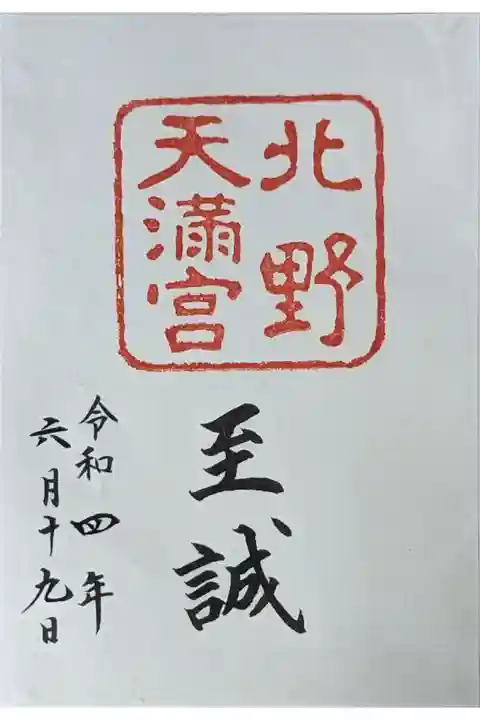 北野
天満宮
至誠
令和四年
六月十九日